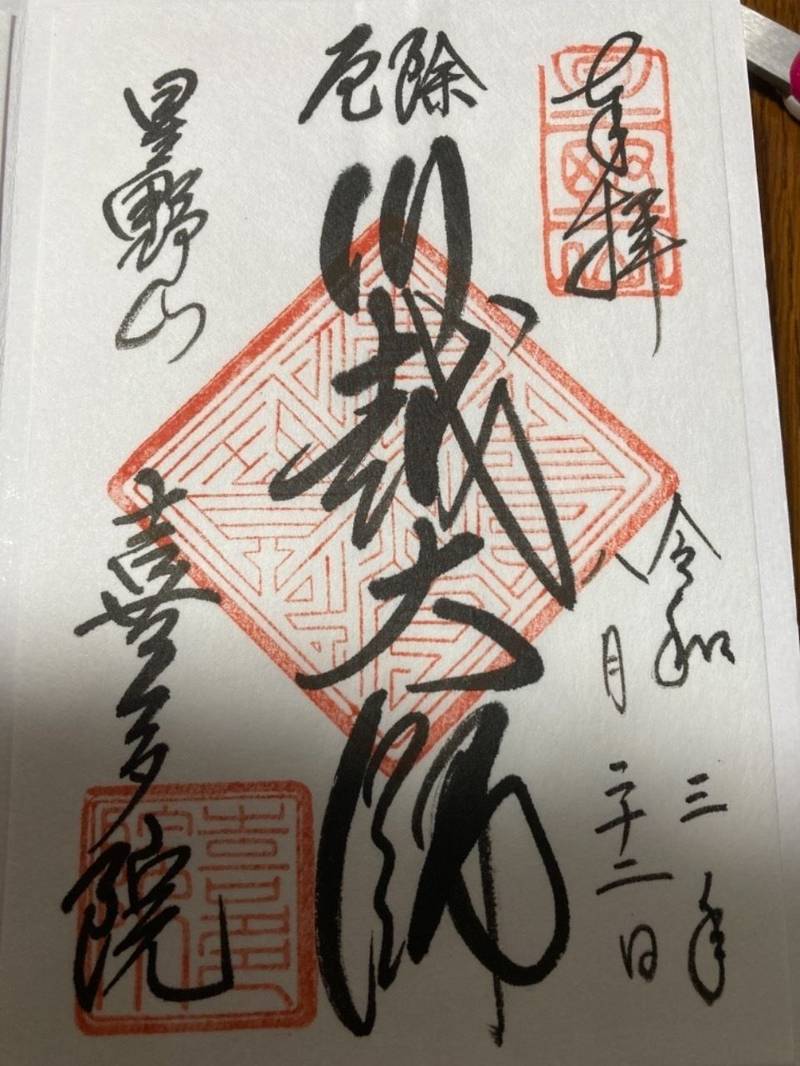 奉拝
令和三年
八月二十二日
厄除
川越大師
星野山
喜多院